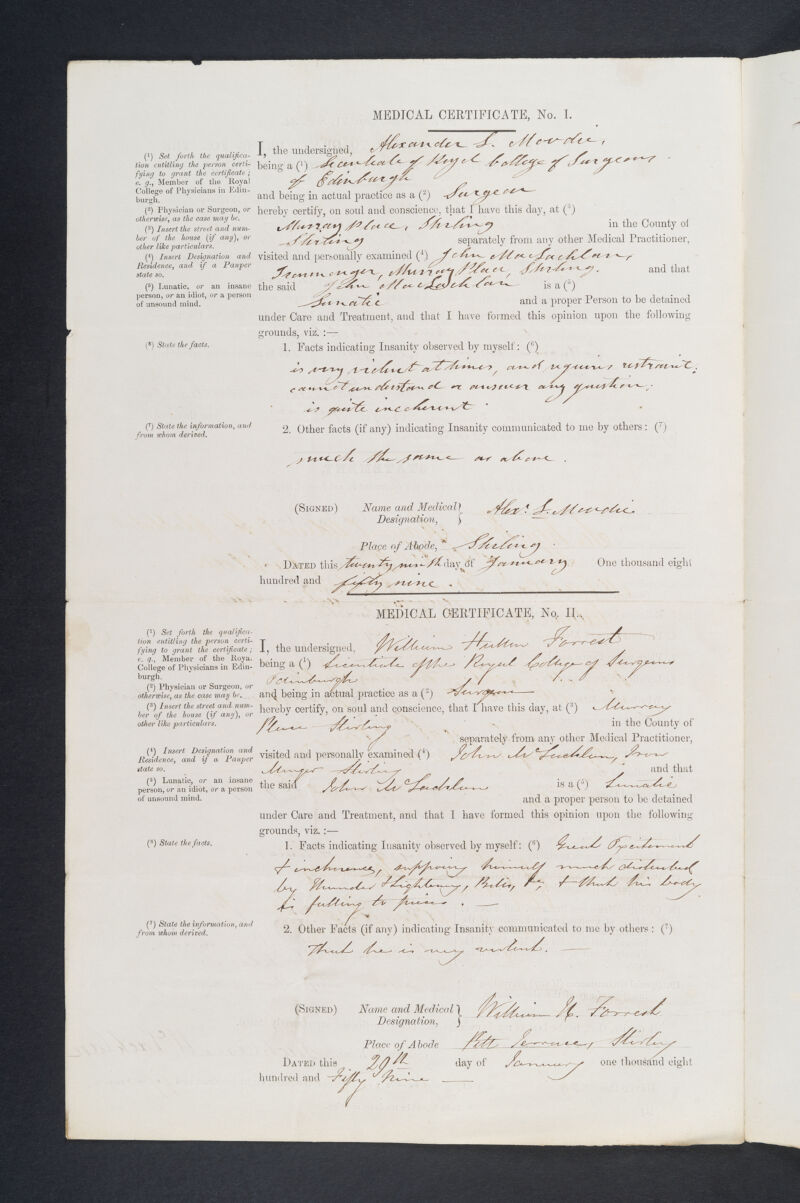 MEDICAL CERTIFICATE, No. I.
(¹) Set forth the qualifica-
tion entitling the person certi-
fying to grant the certificate;
e. g., Member of the Royal
College of Physicians in Edin-
burgh.
(²) Physician or Surgeon, or
otherwise, as the case may be.
(³) Insert the street and num-
ber of the house (if any), or
other like particulars.
(⁴) Insert Designation and
Residence, and if a Pauper
state so.
(⁵) Lunatic, or an insane
person, or an idiot, or a person
of unsound mind.
I, the undersigned, Alexander S. Moodie,
being a (¹) Licentiate of Royal College of Surgeons
of Edinburgh
and being in actual practice as a (²) Surgeon
hereby certify, on soul and conscience, that I have this day, at (³)
Murray Place, Stirling in the County of
Stirling separately from any other Medical Practitioner,
visited and personally examined (⁴) John MacLachlan,
Ironmonger, Murray Place, Stirling. and that
the said John MacLachlan is a (⁵)
Lunatic and a proper Person to be detained
under Care and Treatment, and that I have formed this opinion upon the following
grounds, viz. :—
(⁶) State the facts.
1. Facts indicating Insanity observed by myself: (⁶)
is very violent at times, and requires restraint;
cannot understand or answer any question;
is quite incoherent
(⁷) State the information, and
from whom derived.
2. Other facts (if any) indicating Insanity communicated to me by others: (⁷)
much the same as above.
(SIGNED) Name and Medical Designation, Alexr. S. Moodie
Place of Abode, Stirling
DATED this twenty ninth day of January One thousand eight
hundred and fifty nine.
MEDICAL CERTIFICATE, No. II.
(¹) Set forth the qualifica-
tion entitling the person certi-
fying to grant the certificate;
e. g., Member of the Royal
College of Physicians in Edin-
burgh.
(²) Physician or Surgeon, or
otherwise, as the case may be.
(³) Insert the street and num-
ber of the house (if any), or
other like particulars.
(⁴) Insert Designation and
Residence, and if a Pauper
state so.
(⁵) Lunatic, or an insane
person, or an idiot, or a person
of unsound mind.
I, the undersigned, William Hutton Forrest
being a (¹) Licentiate of the Royal College of Surgeons
Edinburgh
and being in actual practice as a (²) Surgeon
hereby certify, on soul and conscience, that I have this day, at (³) Murray
Place Stirling in the County of
separately from any other Medical Practitioner,
visited and personally examined (⁴) John McLachlan, Iron
Monger Stirling and that
the said John McLachlan is a (⁵) Lunatic
and a proper person to be detained
under Care and Treatment, and that I have formed this opinion upon the following
grounds, viz. :—
(⁶) State the facts.
1. Facts indicating Insanity observed by myself: (⁶) Great Excitement
& incoherence, supposing himself much disturbed
by Thunder & lightening, &c, & that his body
is falling to pieces. —
(⁷) State the information, and
from whom derived.
2. Other Facts (if any) indicating Insanity communicated to me by others: (⁷)
That he is very violent. —
(SIGNED) Name and Medical Designation, William H. Forrest
Place of Abode Pitt Terrace, Stirling
DATED this 29th day of January one thousand eight
hundred and Fifty Nine —